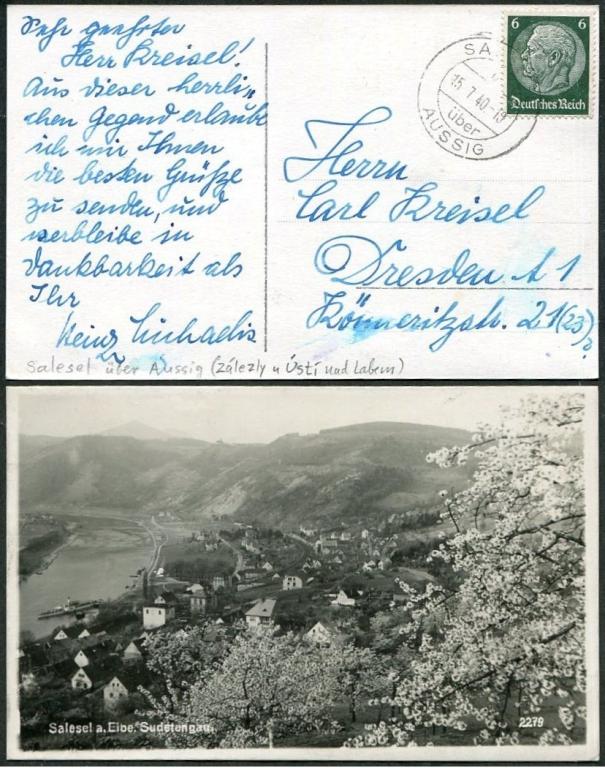 Sehr geehrter
Herr Kreisel!
Aus dieser herrli„
chen Gegend erlaube
ich mir Ihnen
die besten Grüße
zu senden, und
verbleibe in
Dankbarkeit als
Ihr
Heinz Michaelis
6 6
Deutsches Reich
SA
15.7.40
über
AUSSIG
Herrn
Carl Kreisel
Dresden A 1
Könneritzstr. 21(23)?
Salesel über Aussig (Zálezly u Ústí nad Labem)
Salesel a. Elbe. Sudetengau.
2279